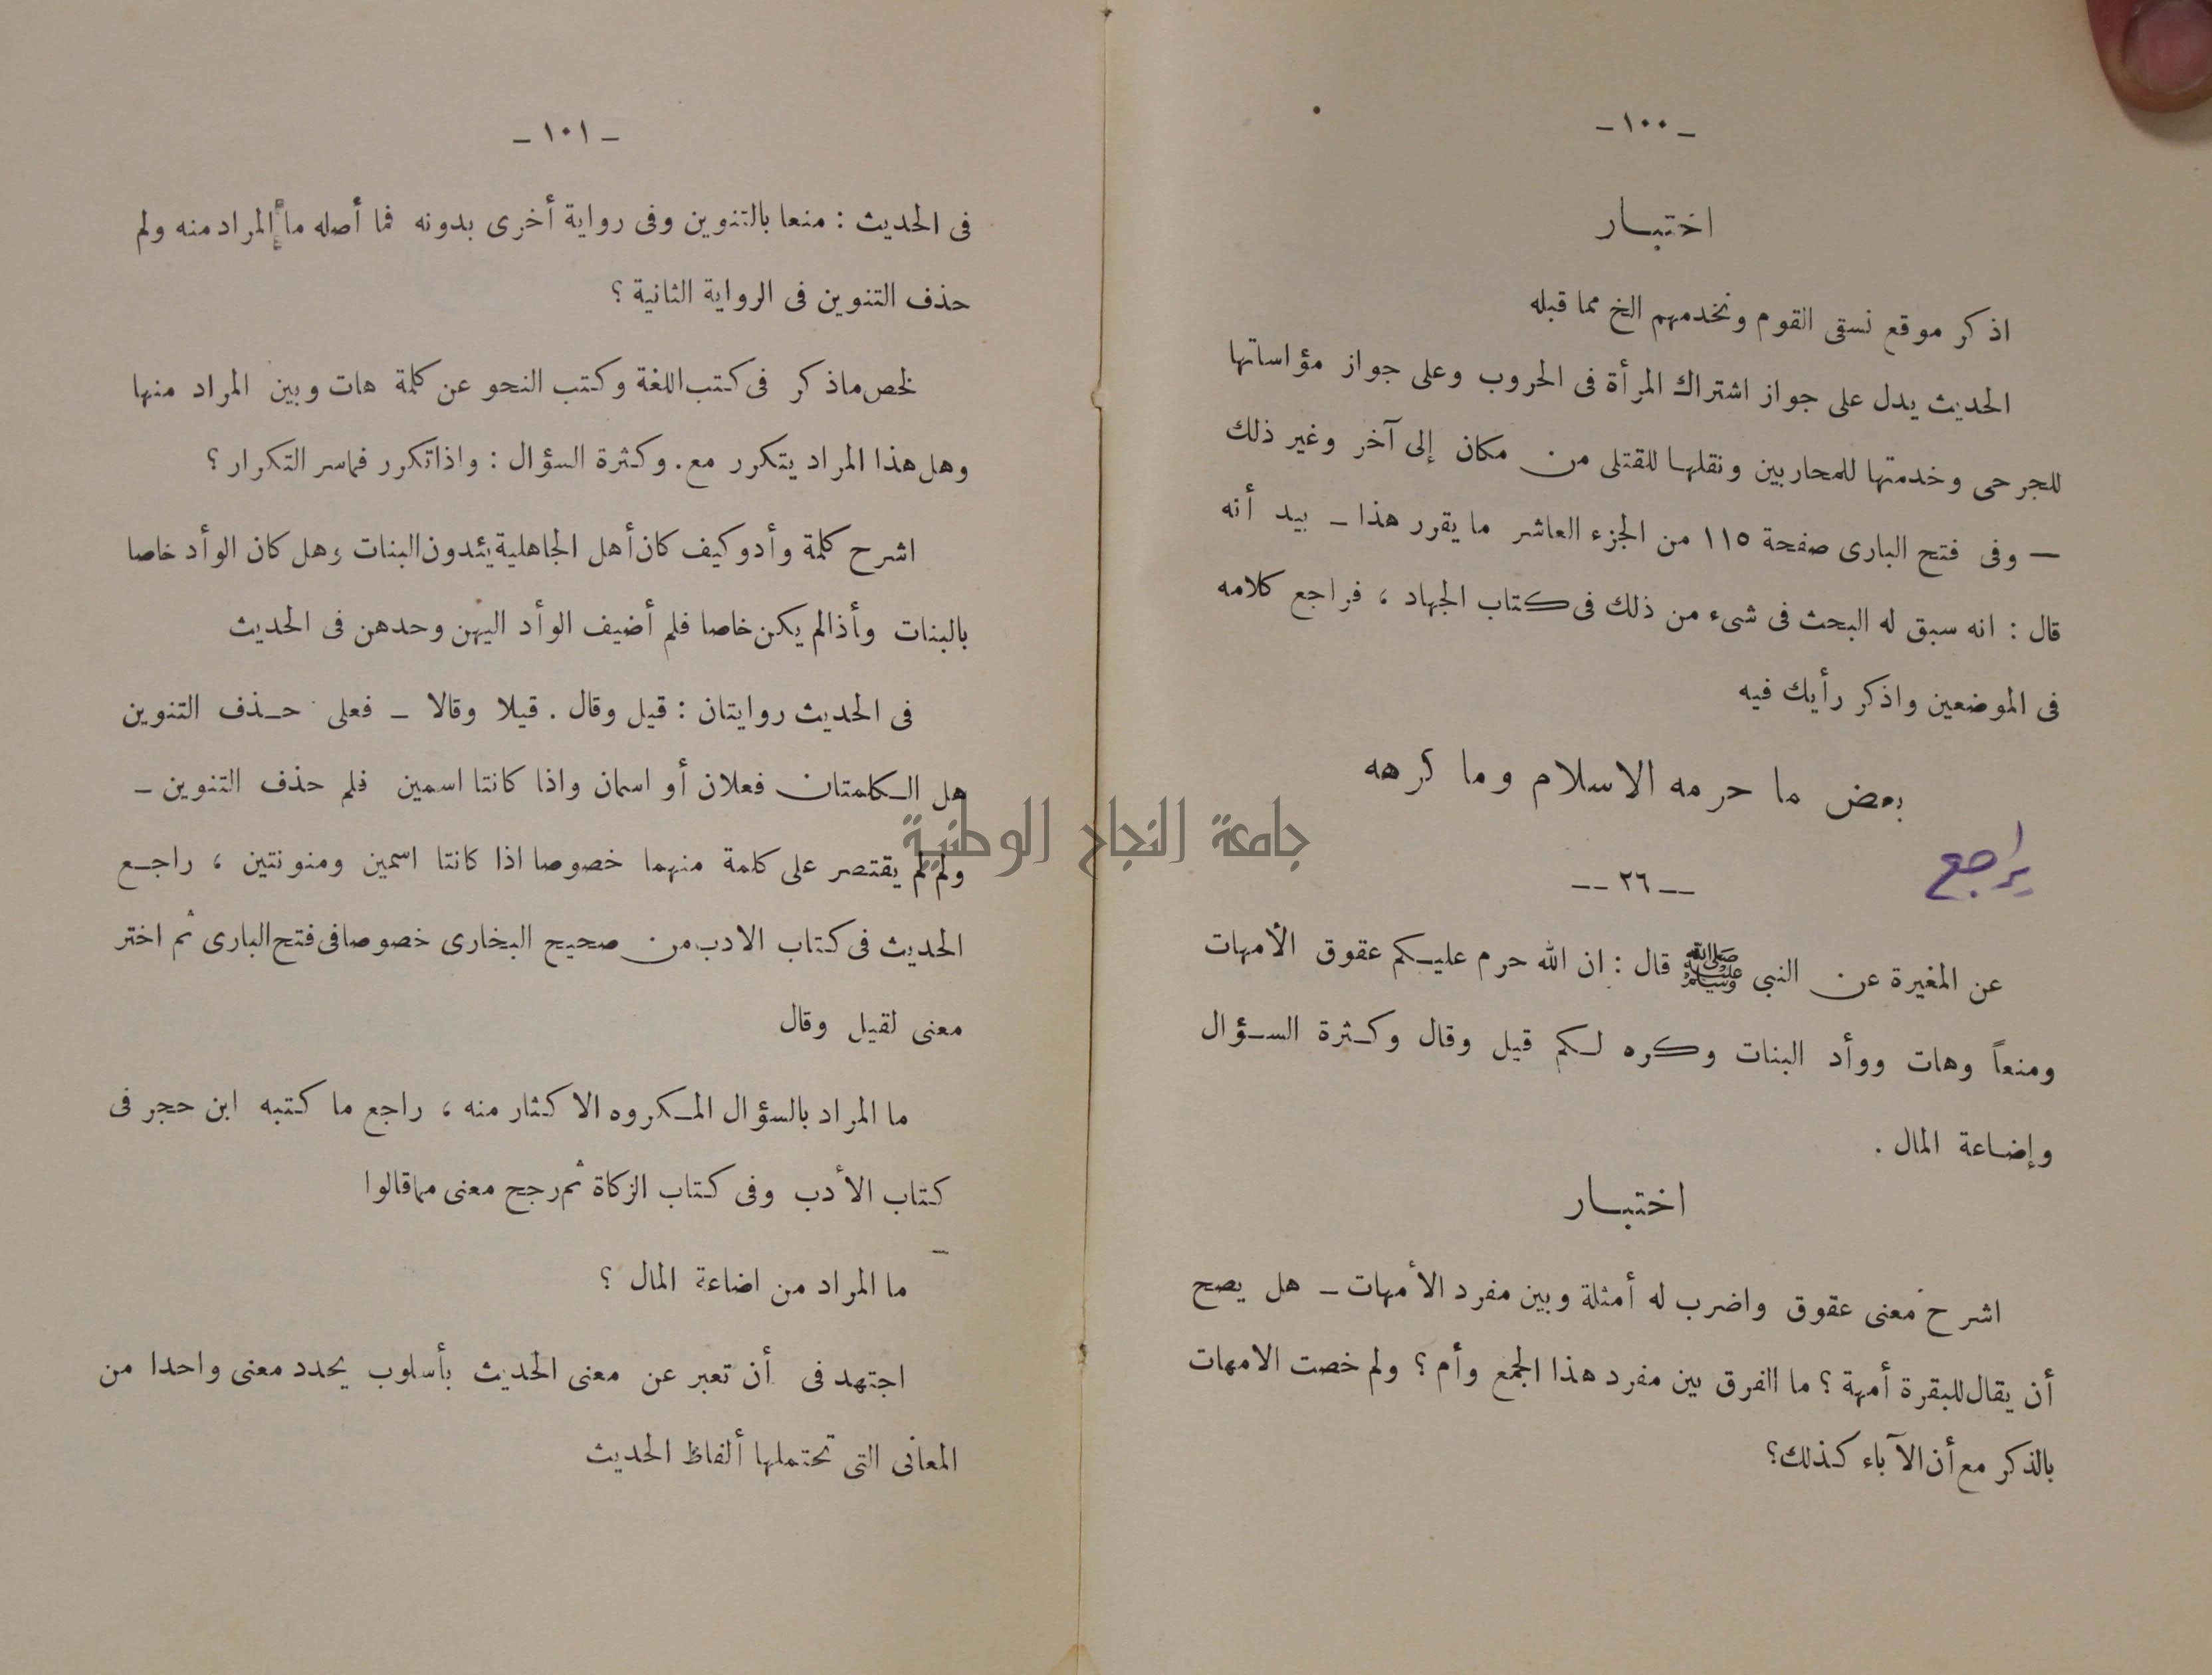 - ١٠٠ -
اختبـار
اذكر موقع نسقى القوم ونخدمهم الخ مما قبله
الحديث يدل على جواز اشتراك المرأة فى الحروب وعلى جواز مؤاساتها
للجرحى وخدمتها للمحاربين ونقلهـا للقتلى من مكان إلى آخر وغير ذلك
— وفى فتح البارى صفحة ١١٥ من الجزء العاشر ما يقرر هذا - بيد أنه
قال : انه سبق له البحث فى شىء من ذلك فى كتاب الجهاد ، فراجع كلامه
فى الموضعين واذكر رأيك فيه
بعض ما حرمه الاسلام وما كرهه
يراجع
-- ٢٦ --
عن المغيرة عن النبي ﷺ قال : ان الله حرم عليـكم عقوق الأمهات
ومنعاً وهات ووأد البنات وكره لـكم قيل وقال وكـثرة السـؤال
وإضـاعة المال .
اختبـار
اشرح معنى عقوق واضرب له أمثلة وبين مفرد الأمهات - هل يصح
أن يقال للبقرة أمهة ؟ ما الفرق بين مفرد هذا الجمع وأم ؟ ولم خصت الامهات
بالذكر مع أن الآباء كذلك؟
- ١٠١ -
فى الحديث : منعا بالتنوين وفى رواية أخرى بدونه فما أصله ما المراد منه ولم
حذف التنوين فى الرواية الثانية ؟
لخص ماذكر فى كتب اللغة وكتب النحو عن كلمة هات وبين المراد منها
وهل هذا المراد يتكرر مع. وكثرة السؤال : واذا تكرر فماسر التكرار ؟
اشرح كلمة وأد وكيف كان أهل الجاهلية يئدون البنات وهل كان الوأد خاصا
بالبنات وأذالم يكن خاصا فلم أضيف الوأد اليهن وحدهن فى الحديث
فى الحديث روايتان : قيل وقال . قيلا وقالا - فعلى حـذف التنوين
هل الـكلمتان فعلان أو اسمان واذا كانتا اسمين فلم حذف التنوين -
ولم لم يقتصر على كلمة منهما خصوصا اذا كانتا اسمين ومنونتين ، راجـع
الحديث فى كتاب الادب من صحيح البخارى خصوصا فى فتح البارى ثم اختر
معنى لقيل وقال
ما المراد بالسؤال المـكروه الاكثار منه ، راجع ما كتبه ابن حجر فى
كتاب الأدب وفى كتاب الزكاة ثم رجح معنى مما قالوا
ما المراد من اضاعة المال ؟
اجتهد فى أن تعبر عن معنى الحديث بأسلوب يحدد معنى واحدا من
المعانى التى تحتملها ألفاظ الحديث
جامعة النجاح الوطنية